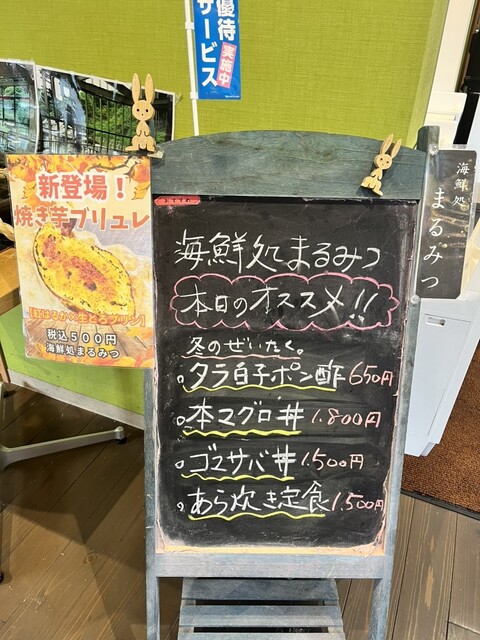 優待
サービス
実施中
新登場！
焼き芋ブリュレ
【紅はるか×生とろプリン】
税込500円
海鮮処まるみつ
海鮮処
まるみつ
海鮮処まるみつ
本日のオススメ!!
冬のぜいたく。
タラ白子ポン酢 650円
本マグロ丼 1.800円
ゴマサバ丼 1.500円
あら炊き定食 1.500円